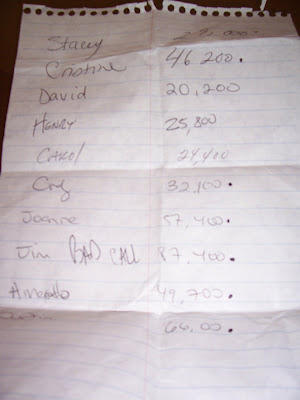 Stacey
Cristine 46 200.
David 20,200
HENRY 25,800
CAROl 24,400
32,100.
Joanne 57,400.
Jim BAD CALL 87,400.
49,700.
66,00.